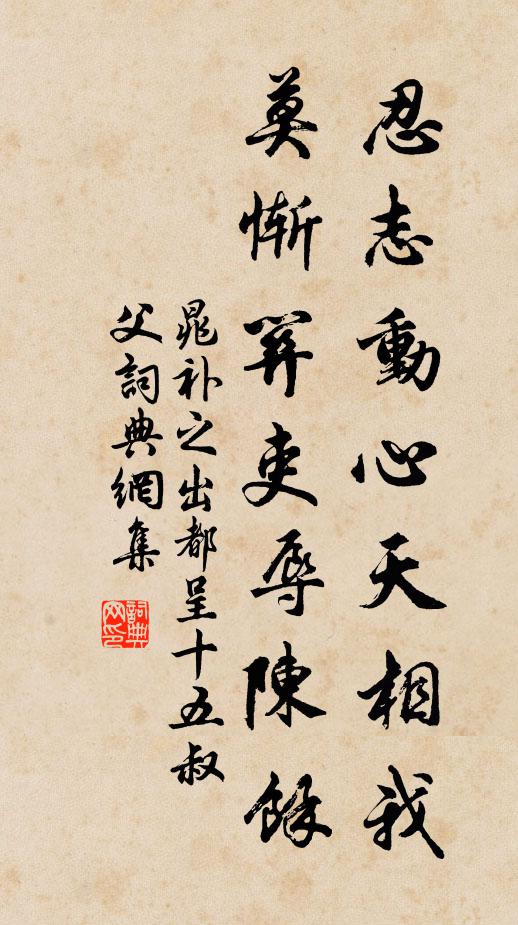 忍志動心天相我
莫慚笄吏辱陳餘
晁补之出都呈十五叔
父詞典網集
詞典網印